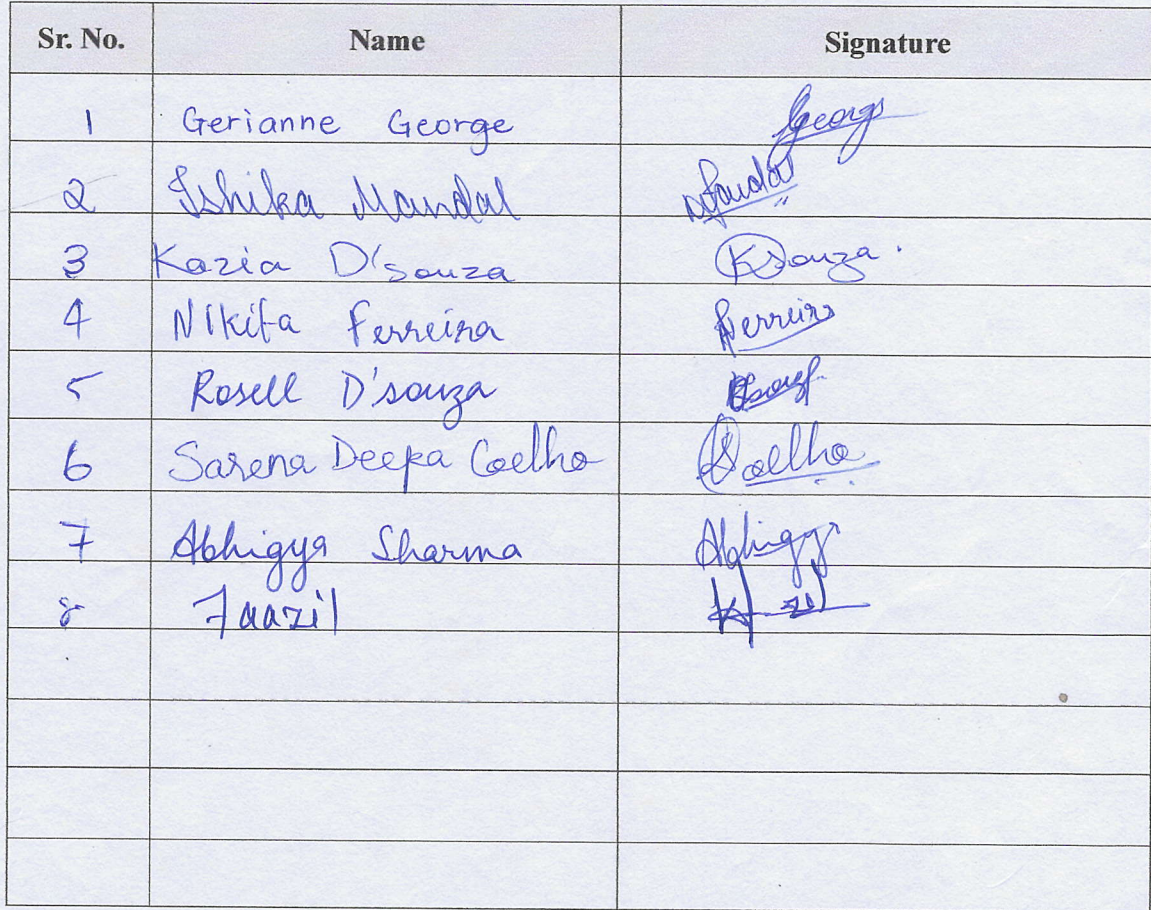 Sr. No. Name Signature
1 Gerianne George George
2 Ishika Mandal Mandal
3 Kazia D'souza KDsouza.
4 NIkita Ferreira Ferreira
5 Rosell D'souza
6 Sarena Deepa Coelho SCoelho
7 Abhigya Sharma Abhigya
8 Faazil